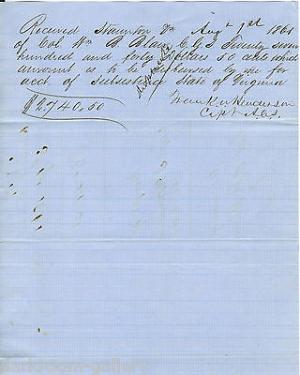 Received Staunton Va Aug 9th 1861
of Col. Wm B Blair C.G.S Twenty seven
hundred and forty dollars 50 cents which
amount is to be disbursed by me for
acct. of subsistence State of Virginia
$2,740.50
Henderson
Capt A.C.S.